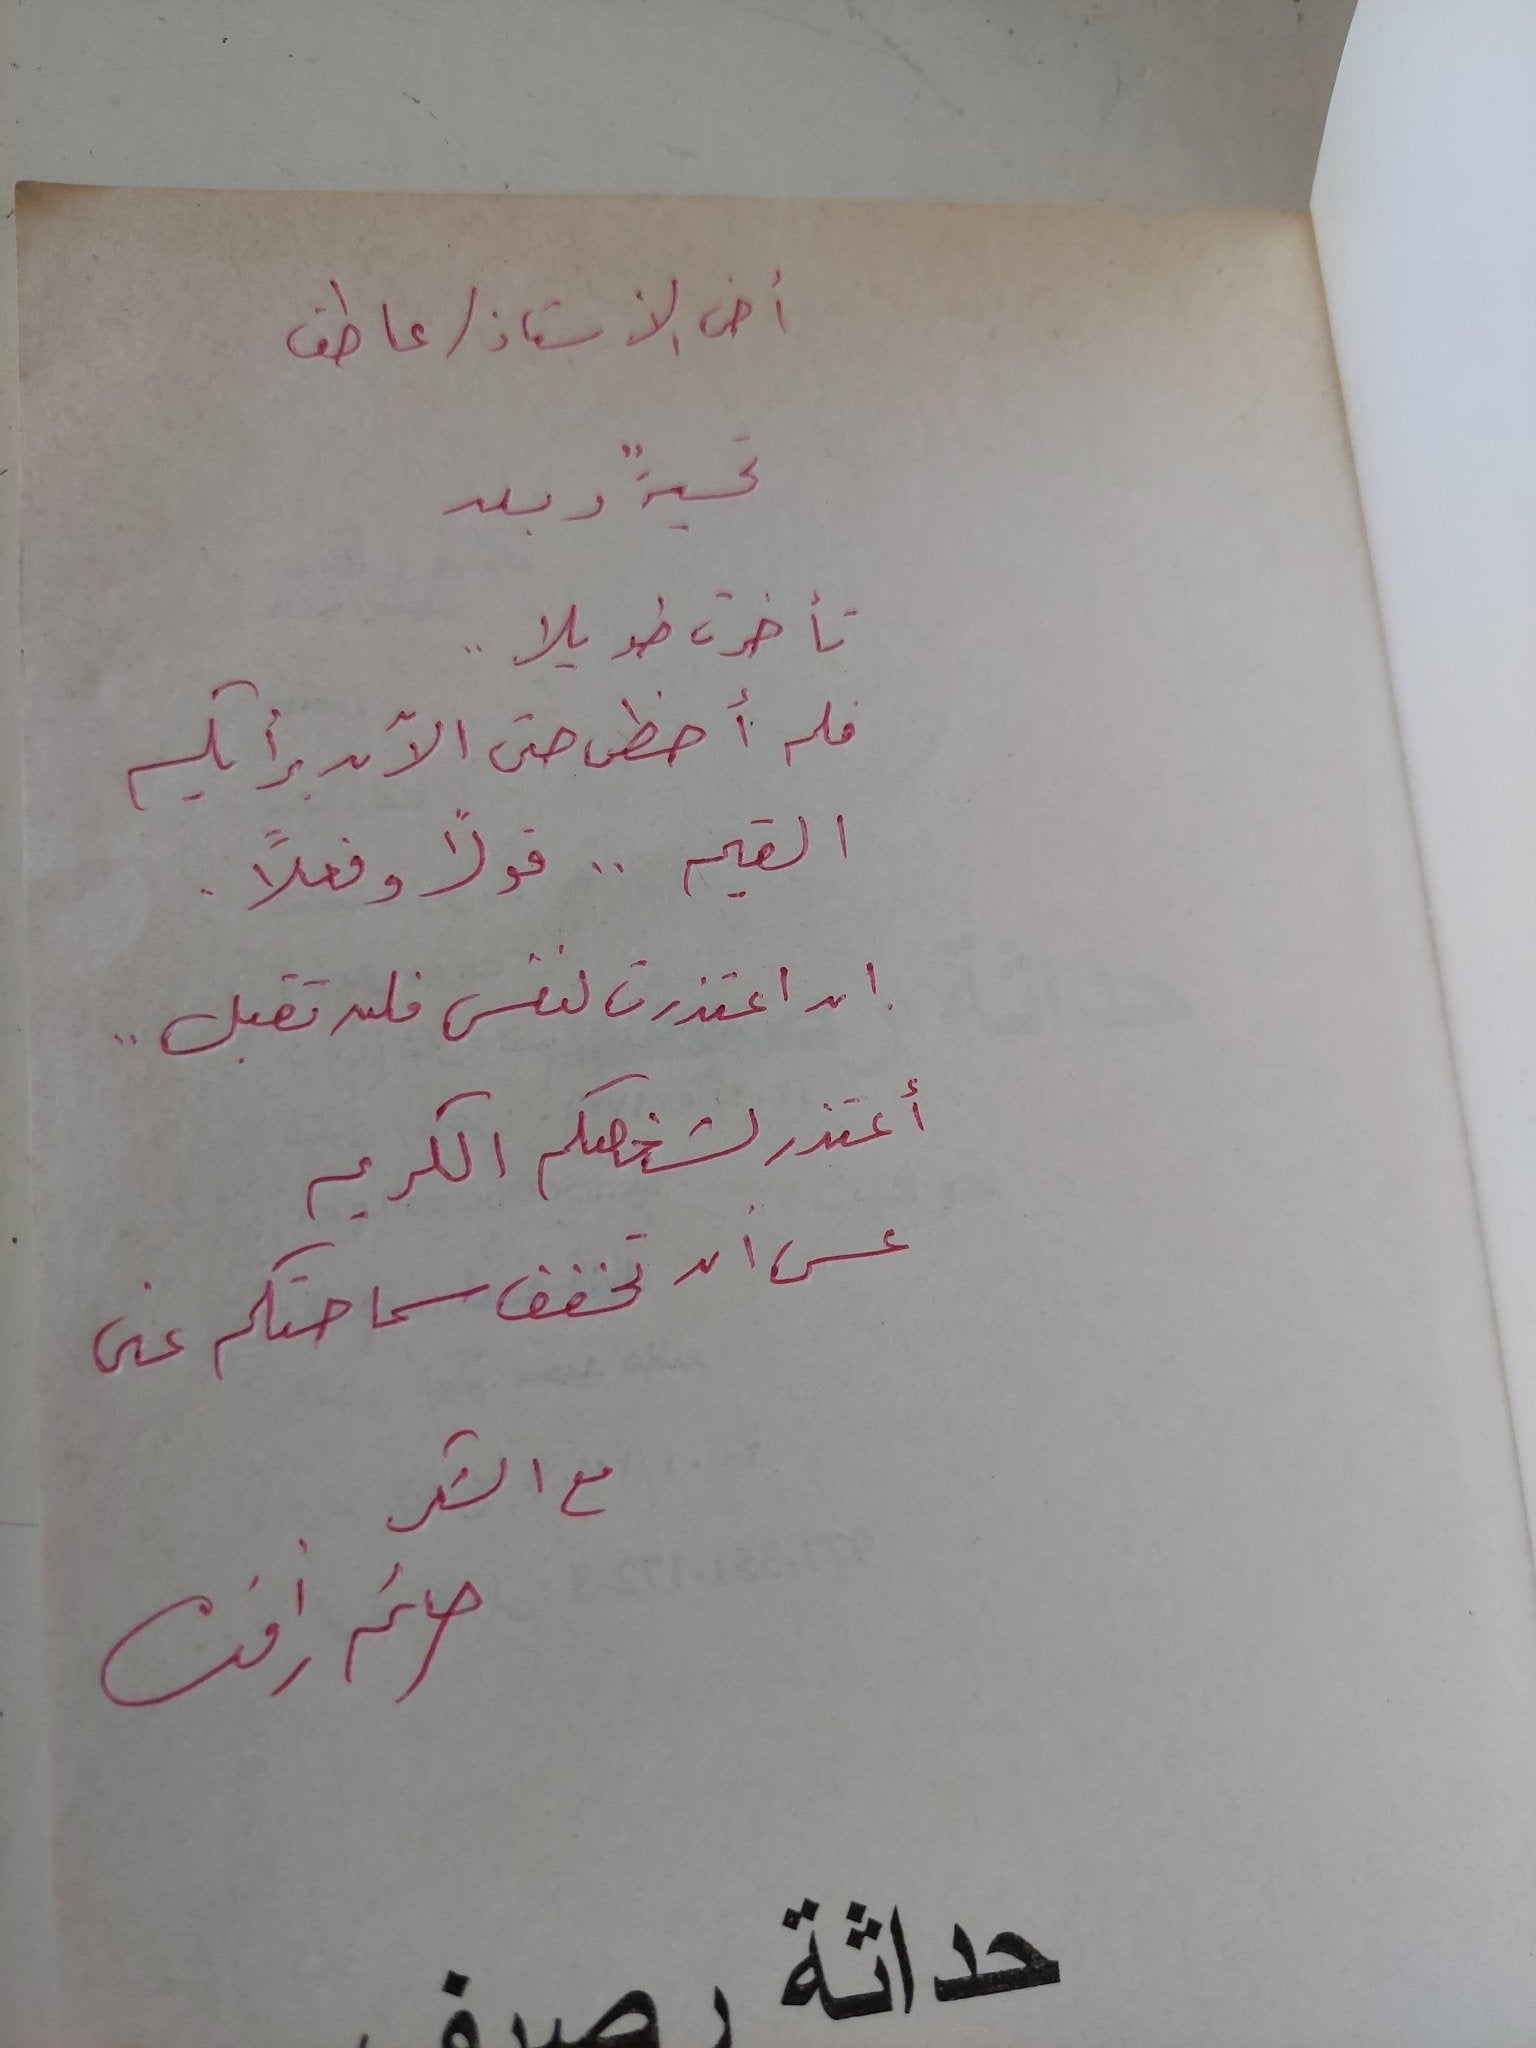 أخى الأستاذ/ عاطف
تحيةً وبعد
تأخرت طويلا ..
فلم أحظى حتى الآن برأيكم
القيم .. قولاً وفعلاً .
إن اعتذرت لنفسى فلن تقبل ..
أعتذر لشخصكم الكريم
عسى أن تخفف سماحتكم عنى
مع الشكر
رأفت
حداثة رصيف